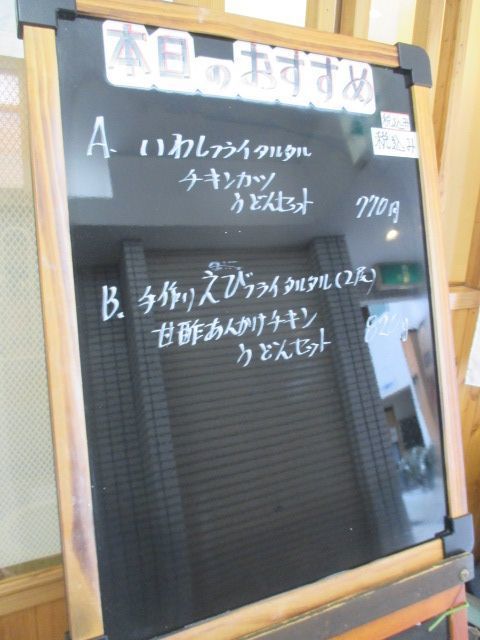 本日のおすすめ
税込み
税込み
A. いわしフライタルタル
チキンカツ
うどんセット 770円
B. 手作りえびフライタルタル(2尾)
甘酢あんかけチキン
うどんセット